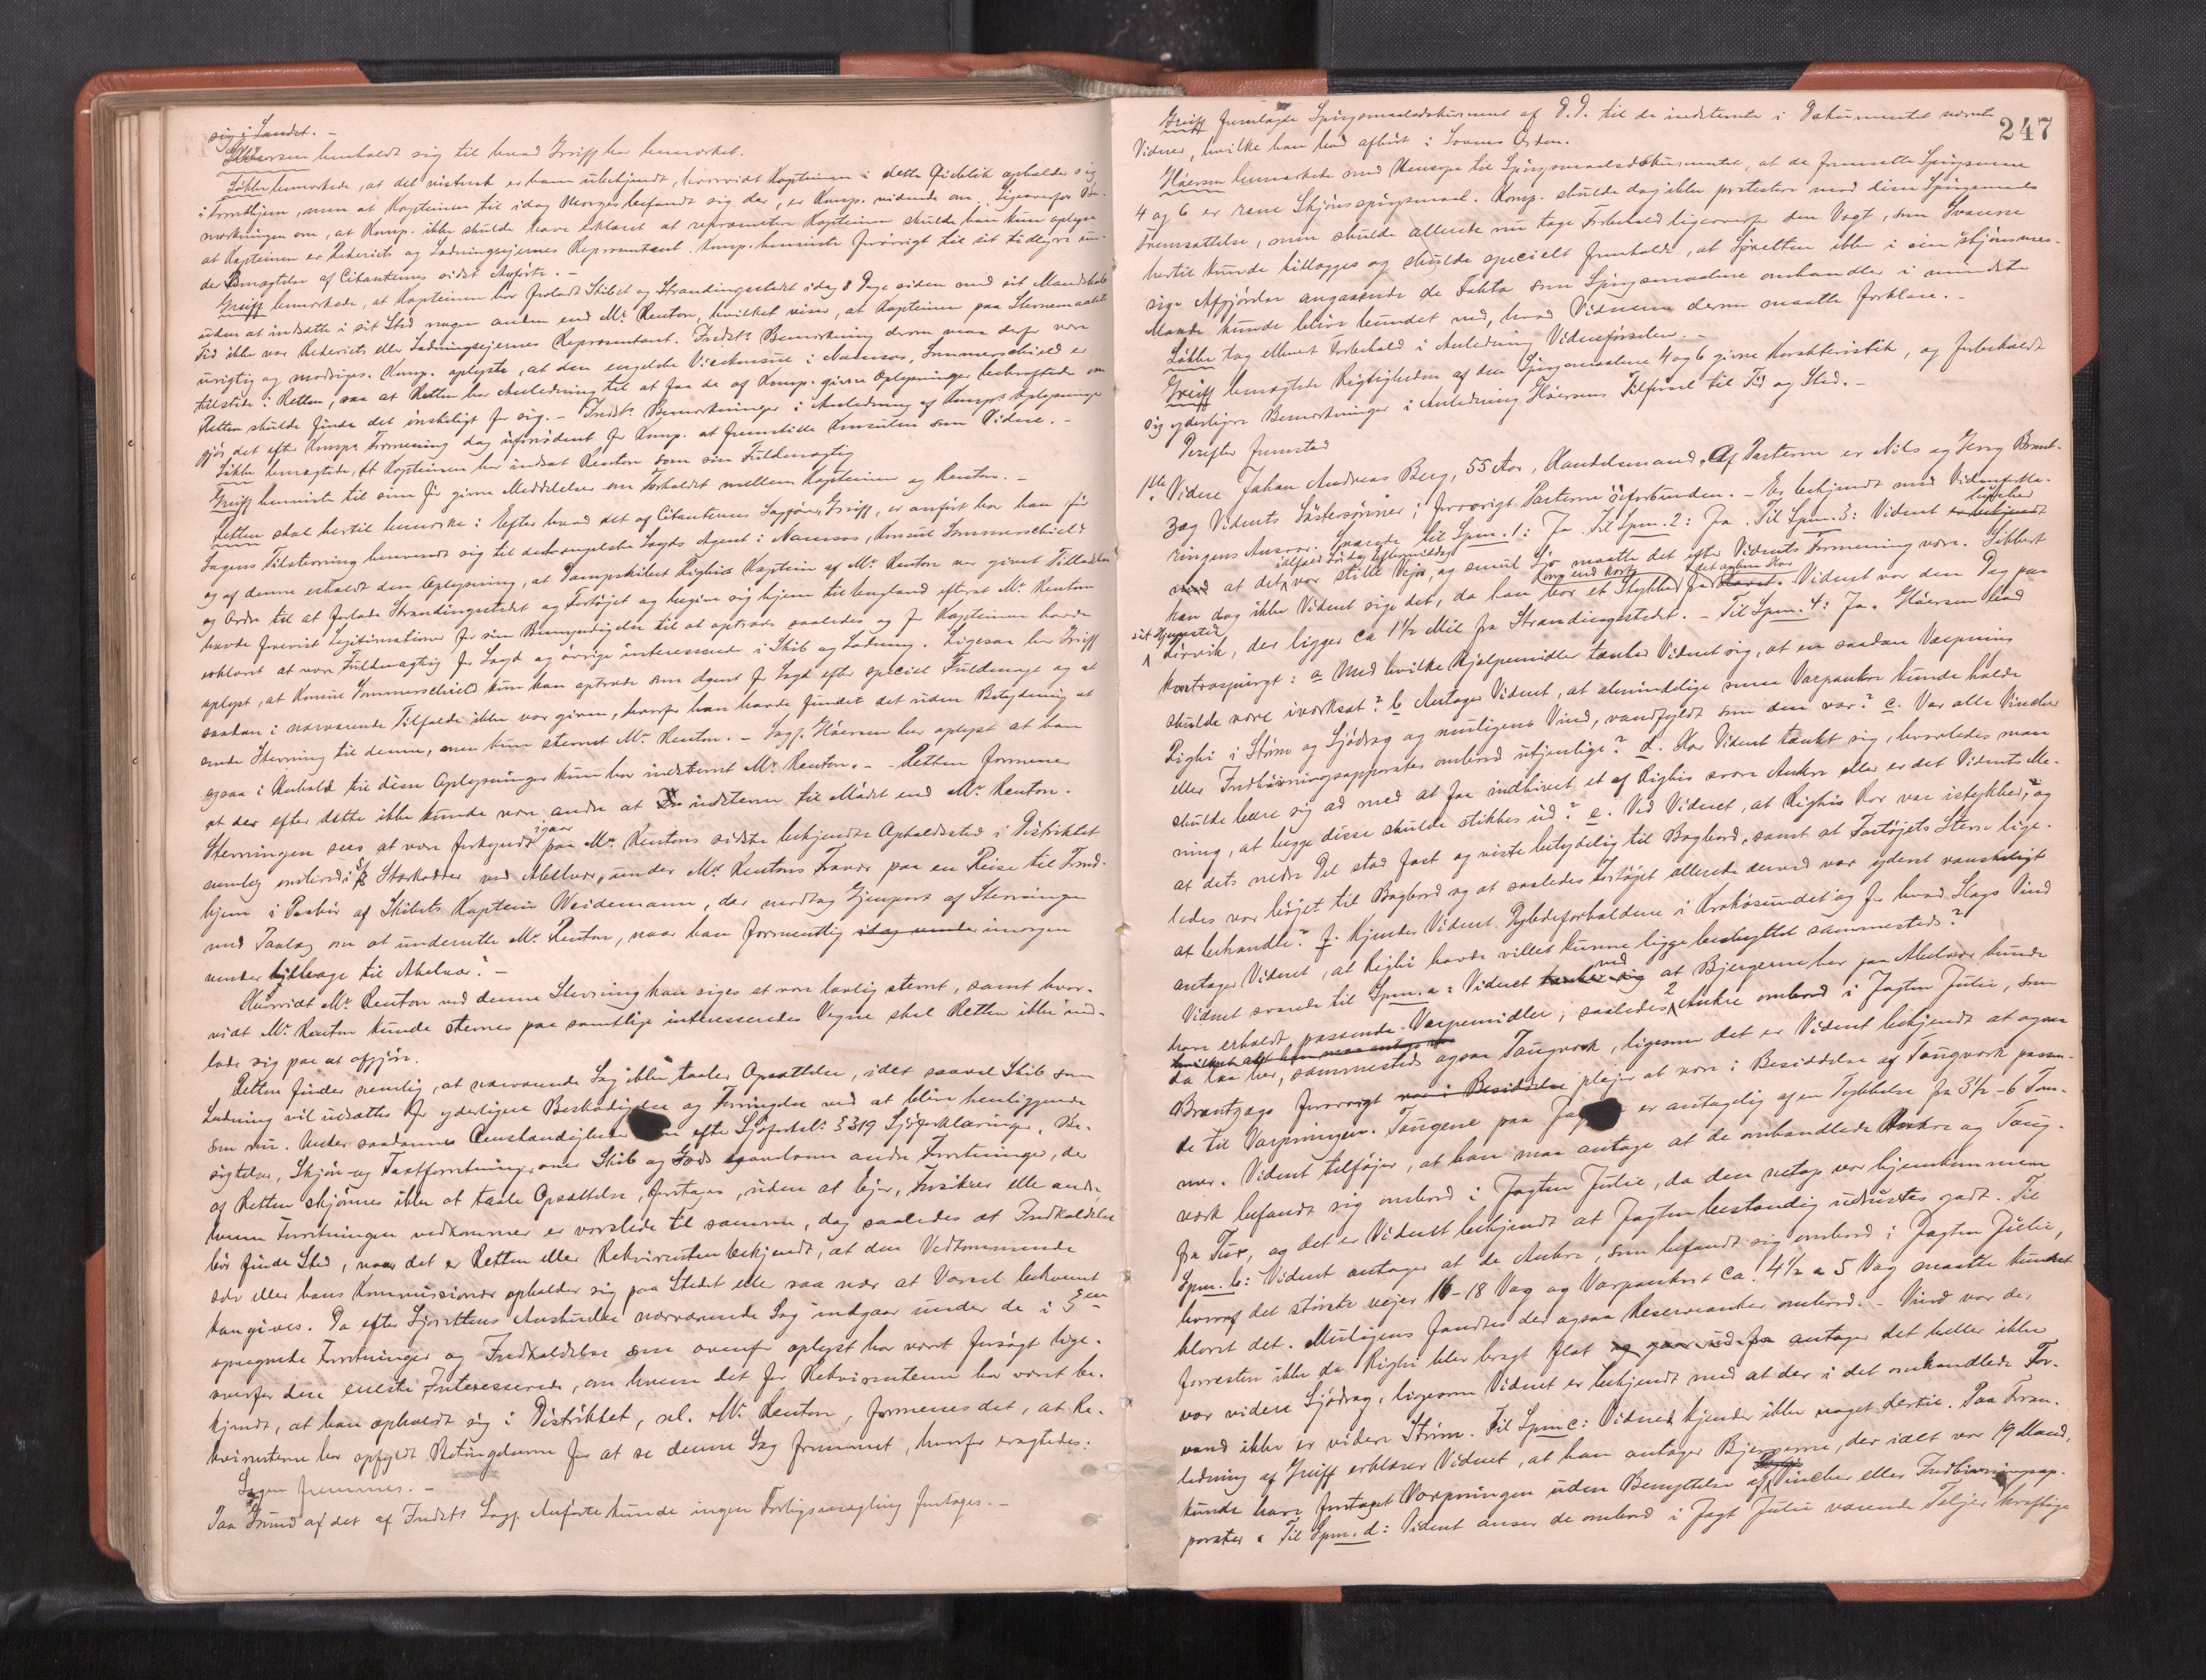 sig i Landet. -
Håersen henholdt sig til hvad Greiff har bemærket.
Løkke bemærkede, at det vistnok er ham ubekjendt, hvorvidt Kapteinen i dette Øieblik opholder sig
i Trondhjem, men at Kapteinen til idag Morges befandt sig der, er Komp. vidende om. Ligeoverfor Be-
mærkningen om, at Komp. ikke skulde have erklæret at repræsentere Kapteinen skulde han kun oplyse
at Kapteinen er Rederiets og Ladningseiernes Repræsentant. Komp. henviste forøvrigt til sit tidligere un-
der Benægtelse af Citanternes sidst Anførte. -
Greiff bemærkede, at Kapteinen har forladt Skibet og Strandingsstedet idag 8 Dage siden med sit Mandskab
uden at indsætte i sit Sted nogen anden end Mr. Renton, hvilket viser, at Kapteinen paa Stevnemaalets
Tid ikke var Rederiets eller Ladningseiernes Repræsentant. Indst. Bemærkning derom maa derfor være
urigtig og modsiges. Komp. oplyste, at den engelske Vicekonsul i Namsos, Sommerschield er
tilstede i Retten, saa at Retten har Anledning til at faa de af Komp. givne Oplysninger bekræftede om
Retten skulde finde det ønskeligt for sig. - Indst. Bemærkninger i Anledning af Komps Oplysninger
gjør det efter Komps Formening dog ufornødent for Komp. at fremstille Konsulen som Vidne. -
Løkke benægtede, at Kapteinen har indsat Renton som sin Fuldmægtig
Greiff henviste til sine før givne Meddelelser om Forholdet mellem Kapteinen og Renton. -
Retten skal hertil bemærke: Efter hvad det af Citanternes Sagfører, Greiff, er anført har han før
Sagens Tilstevning henvendt sig til det engelske Lloyds Agent i Namsos, Konsul Sommerschield
og af denne erholdt den Oplysning, at Dampskibet Righis Kaptein af Mr. Renton var givet Tilladelse
og Ordre til at forlade Strandingsstedet og Fartøjet og begive sig hjem til England efterat Mr. Renton
havde forevist Legitimationer for sin Bemyndigelse til at optræde saaledes og for Kapteinen havde
erklæret at være Fuldmægtig for Lloyd og øvrige interesserede i Skib og Ladning. Ligesaa har Greiff
oplyst, at Konsul Sommerschield kun kan optræde som Agent for Lloyd efter speciel Fuldmagt og at
saadan i nærværende Tilfælde ikke var given, hvorfor han havde fundet det uden Betydning at
sende Stevning til denne, men kun stevnet Mr. Renton. - Sagf. Håersen har oplyst at han
ogsaa i Henhold til disse Oplysninger kun har indstevnt Mr. Renton. - Retten formener
at der efter dette ikke kunde være andre at indstevne til Mødet end Mr. Renton.
Stevningen sees at være forkyndt igaar paa Mr. Rentons sidste bekjendte Opholdssted i Distriktet
nemlig ombord i S/S Stærkodder ved Abelvær, under Mr. Rentons Fravær paa en Reise til Trond-
hjem i Paahør af Skibets Kaptein Weidemann, der modtog Gjenpart af Stevningen
med Paalæg om at underrette Mr. Renton, naar han formentlig idag under imorgen
vender tilbage til Abelvær. -
Hvorvidt Mr. Renton ved denne Stevning kan siges at være lovlig stevnt, samt hvor-
vidt Mr. Renton kunde stevnes paa samtlige interesseredes Vegne skal Retten ikke ind-
lade sig paa at afgjøre.
Retten finder nemlig, at nærværende Sag ikke taaler Opsættelse, idet saavel Skib som
Ladning vil udsættes for yderligere Beskadigelse og Forringelse ved at blive henliggende
som nu. Under saadanne Omstændigheder efter Sjøfartsl. § 319 Sjøforklaringer, Be-
sigtelser, Skjøn- og Taxtforretninger over Skib og Gods saavelsom andre Forretninger, der
af Retten skjønnes ikke at taale Opsættelse, foretages, uden at Ejer, Assurandør eller andre
hvem Forretningen vedkommer er varslede til samme, dog saaledes at Indkaldelse
bør finde Sted, naar det er Retten eller Rekvirenten bekjendt, at den Vedkommende
selv eller hans Kommissionær opholder sig paa Stedet eller saa nær at Varsel bekvemt
kan gives. Da efter Sjørettens Anskuelse nærværende Sag indgaar under de i § en
opregnede Forretninger og Indkaldelse som ovenfor oplyst har været forsøgt lige-
overfor den eneste Interesserede, om hvem det for Rekvirenterne har været be-
kjendt, at han opholdt sig i Distriktet, nl. Mr. Renton, formenes det, at Re-
kvirenterne har opfyldt Betingelserne for at se denne Sag fremmet, hvorfor eragtedes:
Sagen fremmes. -
Paa Grund af det af Indsts Sagf. Anførte kunde ingen Forligsmægling foretages. -
247
Greiff fremlagde Spørgsmaalsdokument af D.D. til de indstevnte i Dokumentet nævnte
Vidner, hvilke han bad afhørt i Lovens Orden.
Håersen bemærkede med Hensyn til Spørgsmaalsdokumentet, at de fremsatte Spørgsmaal
4 og 6 er rene Skjønsspørgsmaal. Komp. skulde dog ikke protestere mod disse Spørgsmaals
Fremsættelse, men skulde allerede nu tage Forbehold ligeoverfor den Vægt, som Svarene
hertil kunde tillægges og skulde specielt fremholde, at Sjøretten ikke i sin skjønsmæs-
sige Afgjørelse angaaende de Fakta som Spørgsmaalene omhandler i mindste
Maade kunde blive bundet ved, hvad Vidnerne derom maatte forklare. -
Løkke tog ethvert Forbehold i Anledning Vidneførselen. -
Greiff benægtede Rigtigheden af den Spørgsmaalene 4 og 6 givne Karakteristik, og forbeholdt
sig yderligere Bemærkninger i Anledning Håersens Tilførsel til Tid og Sted. -
Derefter fremstod
1ste Vidne Johan Andreas Berg, 55 Aar, Handelsmand. Af Parterne er Nils og Georg Brandt-
zæg Vidnets Søstersønner; forøvrigt Parterne uforbunden. - Er bekjendt med Vidneforkla-
ringens Ansvar. Svarede til Spm. 1: Ja. Til Spm. 2: Ja. Til Spm. 3: Vidnet husker er bekjendt
med at det ialfald Lørdag Eftermiddag var stille Vejr, og smul Sjø maatte det efter Vidnets Formening være. Sikkert
kan dog ikke Vidnet sige det, da han bor et Stykke fra det aabne Hav Havet. Vidnet var den Dag paa
sit Hjemsted dørvik, der ligger ca 1½ Mil fra Strandingsstedet. - Til Spm. 4: Ja. Håersen bad
kontraspurgt: a Med hvilke Hjælpemidler tænker Vidnet sig, at en saadan Varpning
skulde være iverksat? b Antager Vidnet, at almindelige smaa Varpankre kunde holde
Righi i Strøm og Sjødrag og muligens Vind, vandfyldt som den var? c. Var alle Vincher
eller Indhivningsapparater ombord utjenlige? d. Har Vidnet tænkt sig, hvorledes man
skulde bære sig ad med at faa indhivet et af Righis svære Ankre eller er det Vidnets Me-
ning, at begge disse skulde stikkes ud? e. Ved Vidnet, at Righis Ror var istykker, og
at dets nedre Del stod fast og viste betydelig til Bagbord, samt at Fartøjets Stevn lige-
ledes var bøjet til Bagbord og at saaledes Fartøjet allerede derved var yderst vanskeligt
at behandle? f. Kjender Vidnet Dybdeforholdene i Krokøsundet og for hvad Slags Vind
antager Vidnet, at Righi havde villet kunne ligge beskyttet sammesteds?
Vidnet svarede til Spm. a: Vidnet tænker sig ved at Bjergerne her paa Abelvær kunde
have erholdt passende Varpemidler, saaledes 2 Ankre ombord i Jagten Julie, som
hvilket alt han maa antage var
da laa her, sammesteds ogsaa Taugværk, ligesom det er Vidnet bekjendt at ogsaa
Brantzægs forøvrigt var i Besiddelse plejer at være i Besiddelse af Taugværk passen-
de til Varpningen. Taugene paa er antagelig af en Tykkelse fra 3½-6 Tom-
mer. Vidnet tilføjer, at han maa antage at de omhandlede Ankre og Taug-
værk befandt sig ombord i Jagten Julie, da den netop var hjemkommen
fra Tur, og det er Vidnet bekjendt at Jagten bestandig udrustes godt. Til
Spm. b: Vidnet antager at de Ankre, som befandt sig ombord i Jagten Julie,
hvoraf det største vejer 16-18 Vog og Varpankret ca. 4½ a 5 Vog maatte kundet
klaret det. Muligens fandtes der ogsaa Reserveanker ombord. - Vind var der
forresten ikke da Righi blev bragt flot og gaar ud fra antager det heller ikke
var videre Sjødrag, ligesom Vidnet er bekjendt med at der i det omhandlede Far-
vand ikke er videre Strøm. Til Spm c: Vidnet kjender ikke noget dertil. Paa Foran-
ledning af Greiff erklærer Vidnet, at han antager Bjergerne, der ialt var 19 Mand,
kunde have foretaget Varpningen uden Benyttelse af Vincher eller Indhivningsap-
parater. Til Spm. d: Vidnet anser de ombord i Jagt Julie værende Taljer kraftige